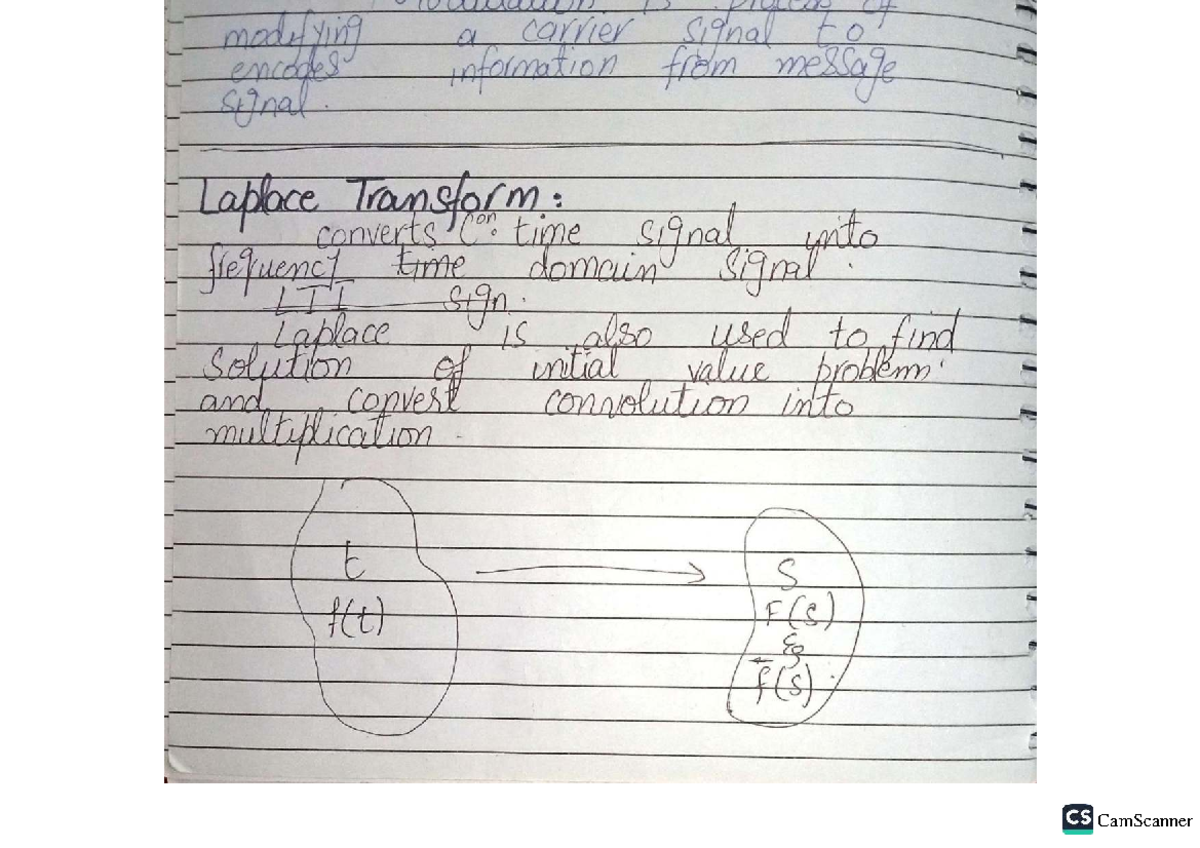 is process of
modifying a carrier signal to
encodes information from message
signal.
Laplace Transform:
converts Con. time signal into
frequency time domain signal.
LTI sign.
Laplace is also used to find
solution of initial value problem
and convert convolution into
multiplication.
t
f(t)
S
F(s)
&
f̄(s)
CS CamScanner